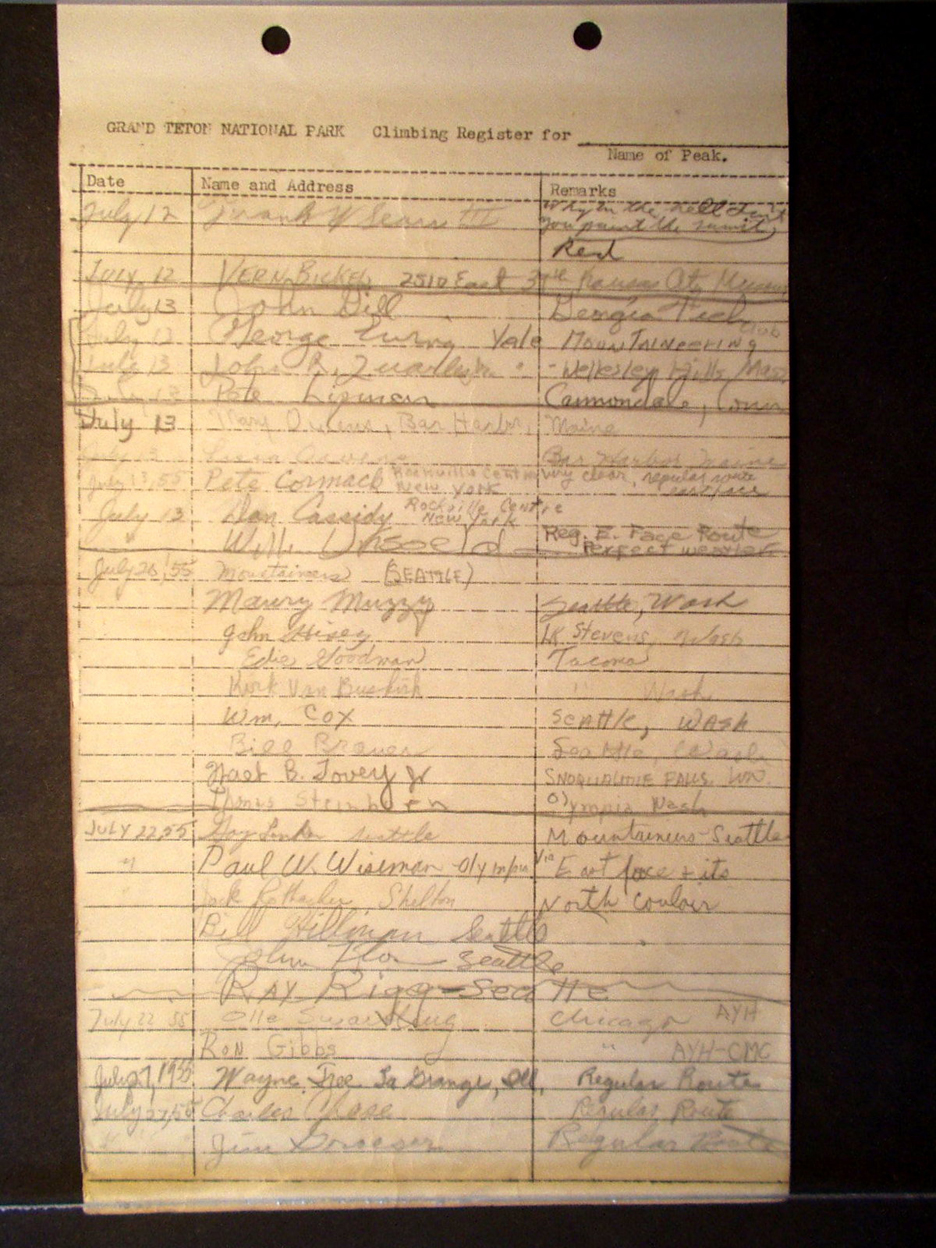 GRAND TETON NATIONAL PARK Climbing Register for
Name of Peak.
Date Name and Address Remarks
July 12 Frank Why in the hell don't
you paint the summit,
Red
July 12 VERN BICKEL 2510 East Kansas City
July 13 John Gill Georgia Tech
July 13 George Ewing Yale MOUNTAINEERING Club
July 13 John R. " - Wellesley Hills, Mass
July 13 Pete Lipman Cannondale, Conn
July 13 Mary Owens, Bar Harbor, Maine
July 13 Bar Harbor Maine
July 13, 55 Pete Cormack Rockville Centre New York Very clear, regular route
east face
July 13 Dan Cassidy Rockville Centre
New York
Willi Unsoeld Reg. E. Face Route
Perfect weather
July 20, 55 Mountaineers (SEATTLE)
Maury Muzzy Seattle, Wash
John Hisey LK Stevens, Wash
Edie Goodman Tacoma
Kirk Van Buskirk " Wash
Wm, COX SEATTLE, WASH
Bill Seattle, Wash
B. Tovey Jr SNOQUALMIE FALLS, WN.
Steinburn Olympia Wash
JULY 22, 55 Seattle Mountaineers - Seattle
" Paul W. Wiseman - Olympia Via East face & its
Jack Shelton North Couloir
Bill Hillman Seattle
John Seattle
RAY Rigg - Seattle
July 22 55 Olle Chicago AYH
RON Gibbs " AYH-CMC
July 27, 1955 Wayne Tree La Grange, Ill. Regular Route
July 27, 55 Charles Regular Route
" Jim Regular Route